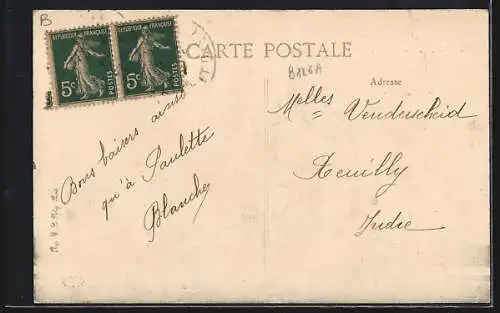 B
REPUBLIQUE FRANÇAISE
5c
POSTES
REPUBLIQUE FRANÇAISE
5c
POSTES
CARTE POSTALE
B126A
Adresse
Melles Venderscheid
Reuilly
Indre
Bons baisers ainsi
qu'à Paulette
Blanche